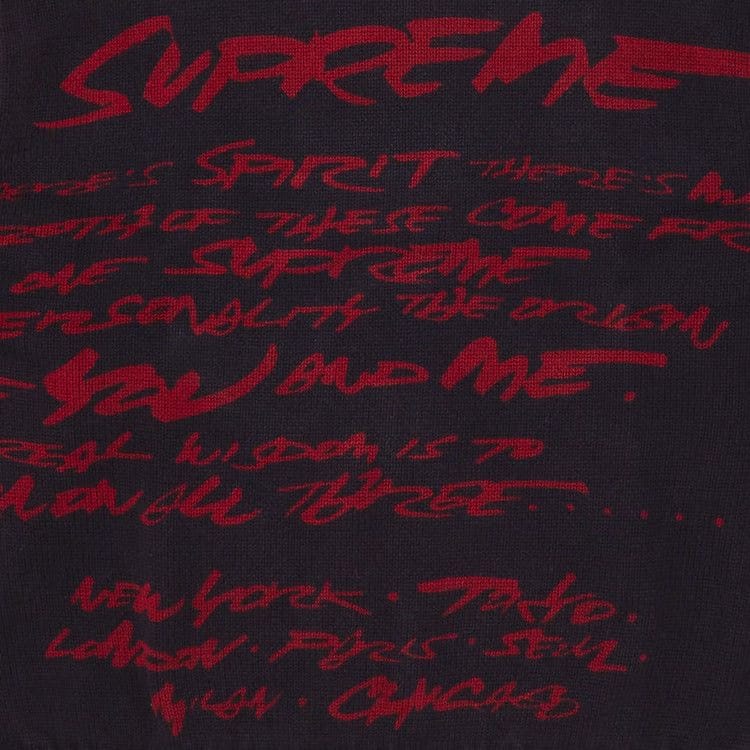 SUPREME
THERE'S SPIRIT THERE'S
DEPTH OF THESE COME FR
ONE SUPREME
PERSONALITY THE ORIGIN
YOU AND ME.
REAL WISDOM IS TO
ON ALL THREE.......
NEW YORK. TOKYO.
LONDON. PARIS. SEOUL.
MILAN. CHICAGO